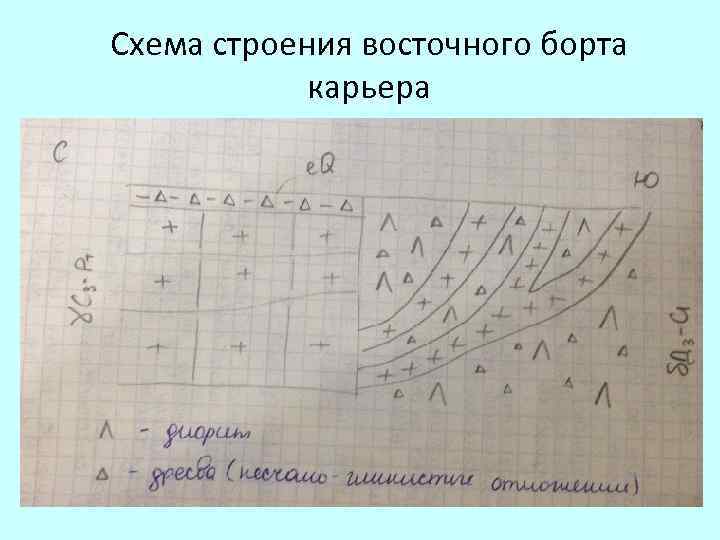 Схема строения восточного борта
карьера
С
eQ
Ю
γC₃-P₁
δД₃-C₁
Λ - диорит
Δ - дресва (песчано-глинистые отложения)